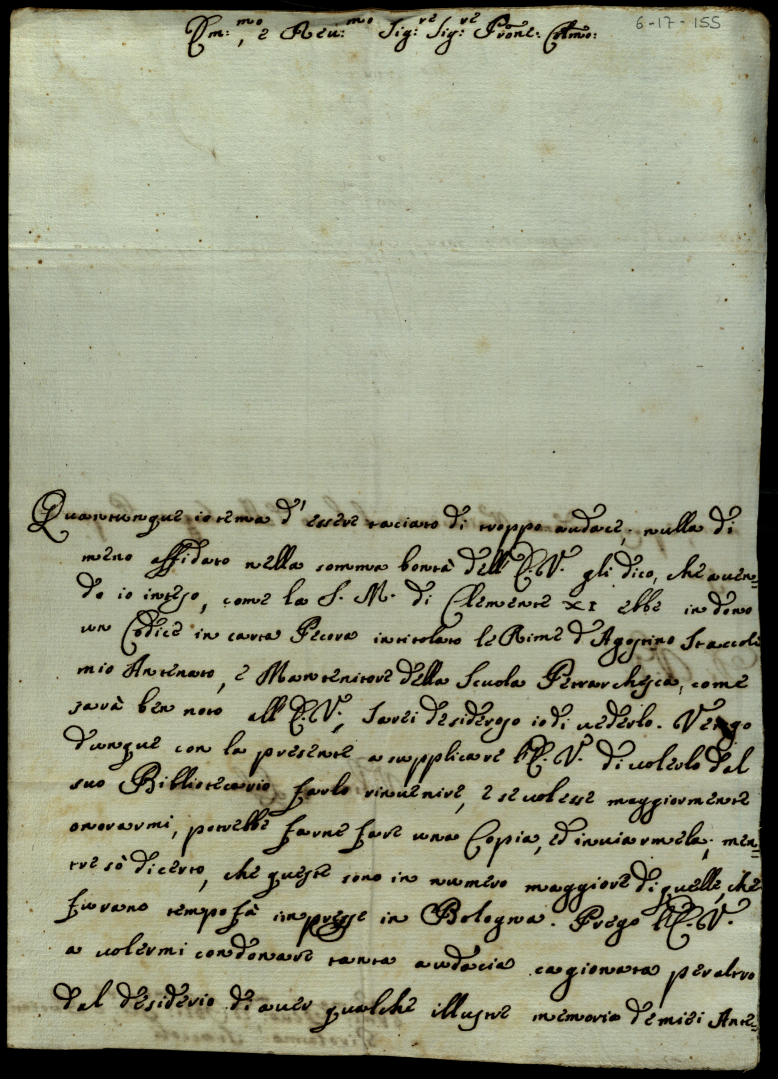 6-17-155
Em:mo, e Reu:mo Sig:re Sig:re Prone: Colmo:
Quantunque io tema d'essere tacciato di troppo audace, nulla di
meno affidato nella somma bontà dell'E.V. gli dico, che auen=
do io inteso, come la S. M. di Clemente XI ebbe in dono
un Codice in carta Pecora intitolato le Rime d'Agostino Staccoli
mio Antenato, e Mantenitore della Scuola Petrarchesca, come
sarà ben noto all'E.V., sarei desideroso io di uederlo. Vengo
dunque con la presente a supplicare l'E.V. di uolerlo dal
suo Bibliotecario farlo rinuenire, e se uolesse maggiormente
onorarmi, potrebbe farne fare una Copia, ed inuiarmela; men=
tre sò di certo, che queste sono in numero maggiore di quelle, che
furano tempo fà impresse in Bologna. Prego l'E.V.
a uolermi condonare tanta audacia cagionata per altro
dal desiderio di auer qualche illustre memoria de miei Ante=